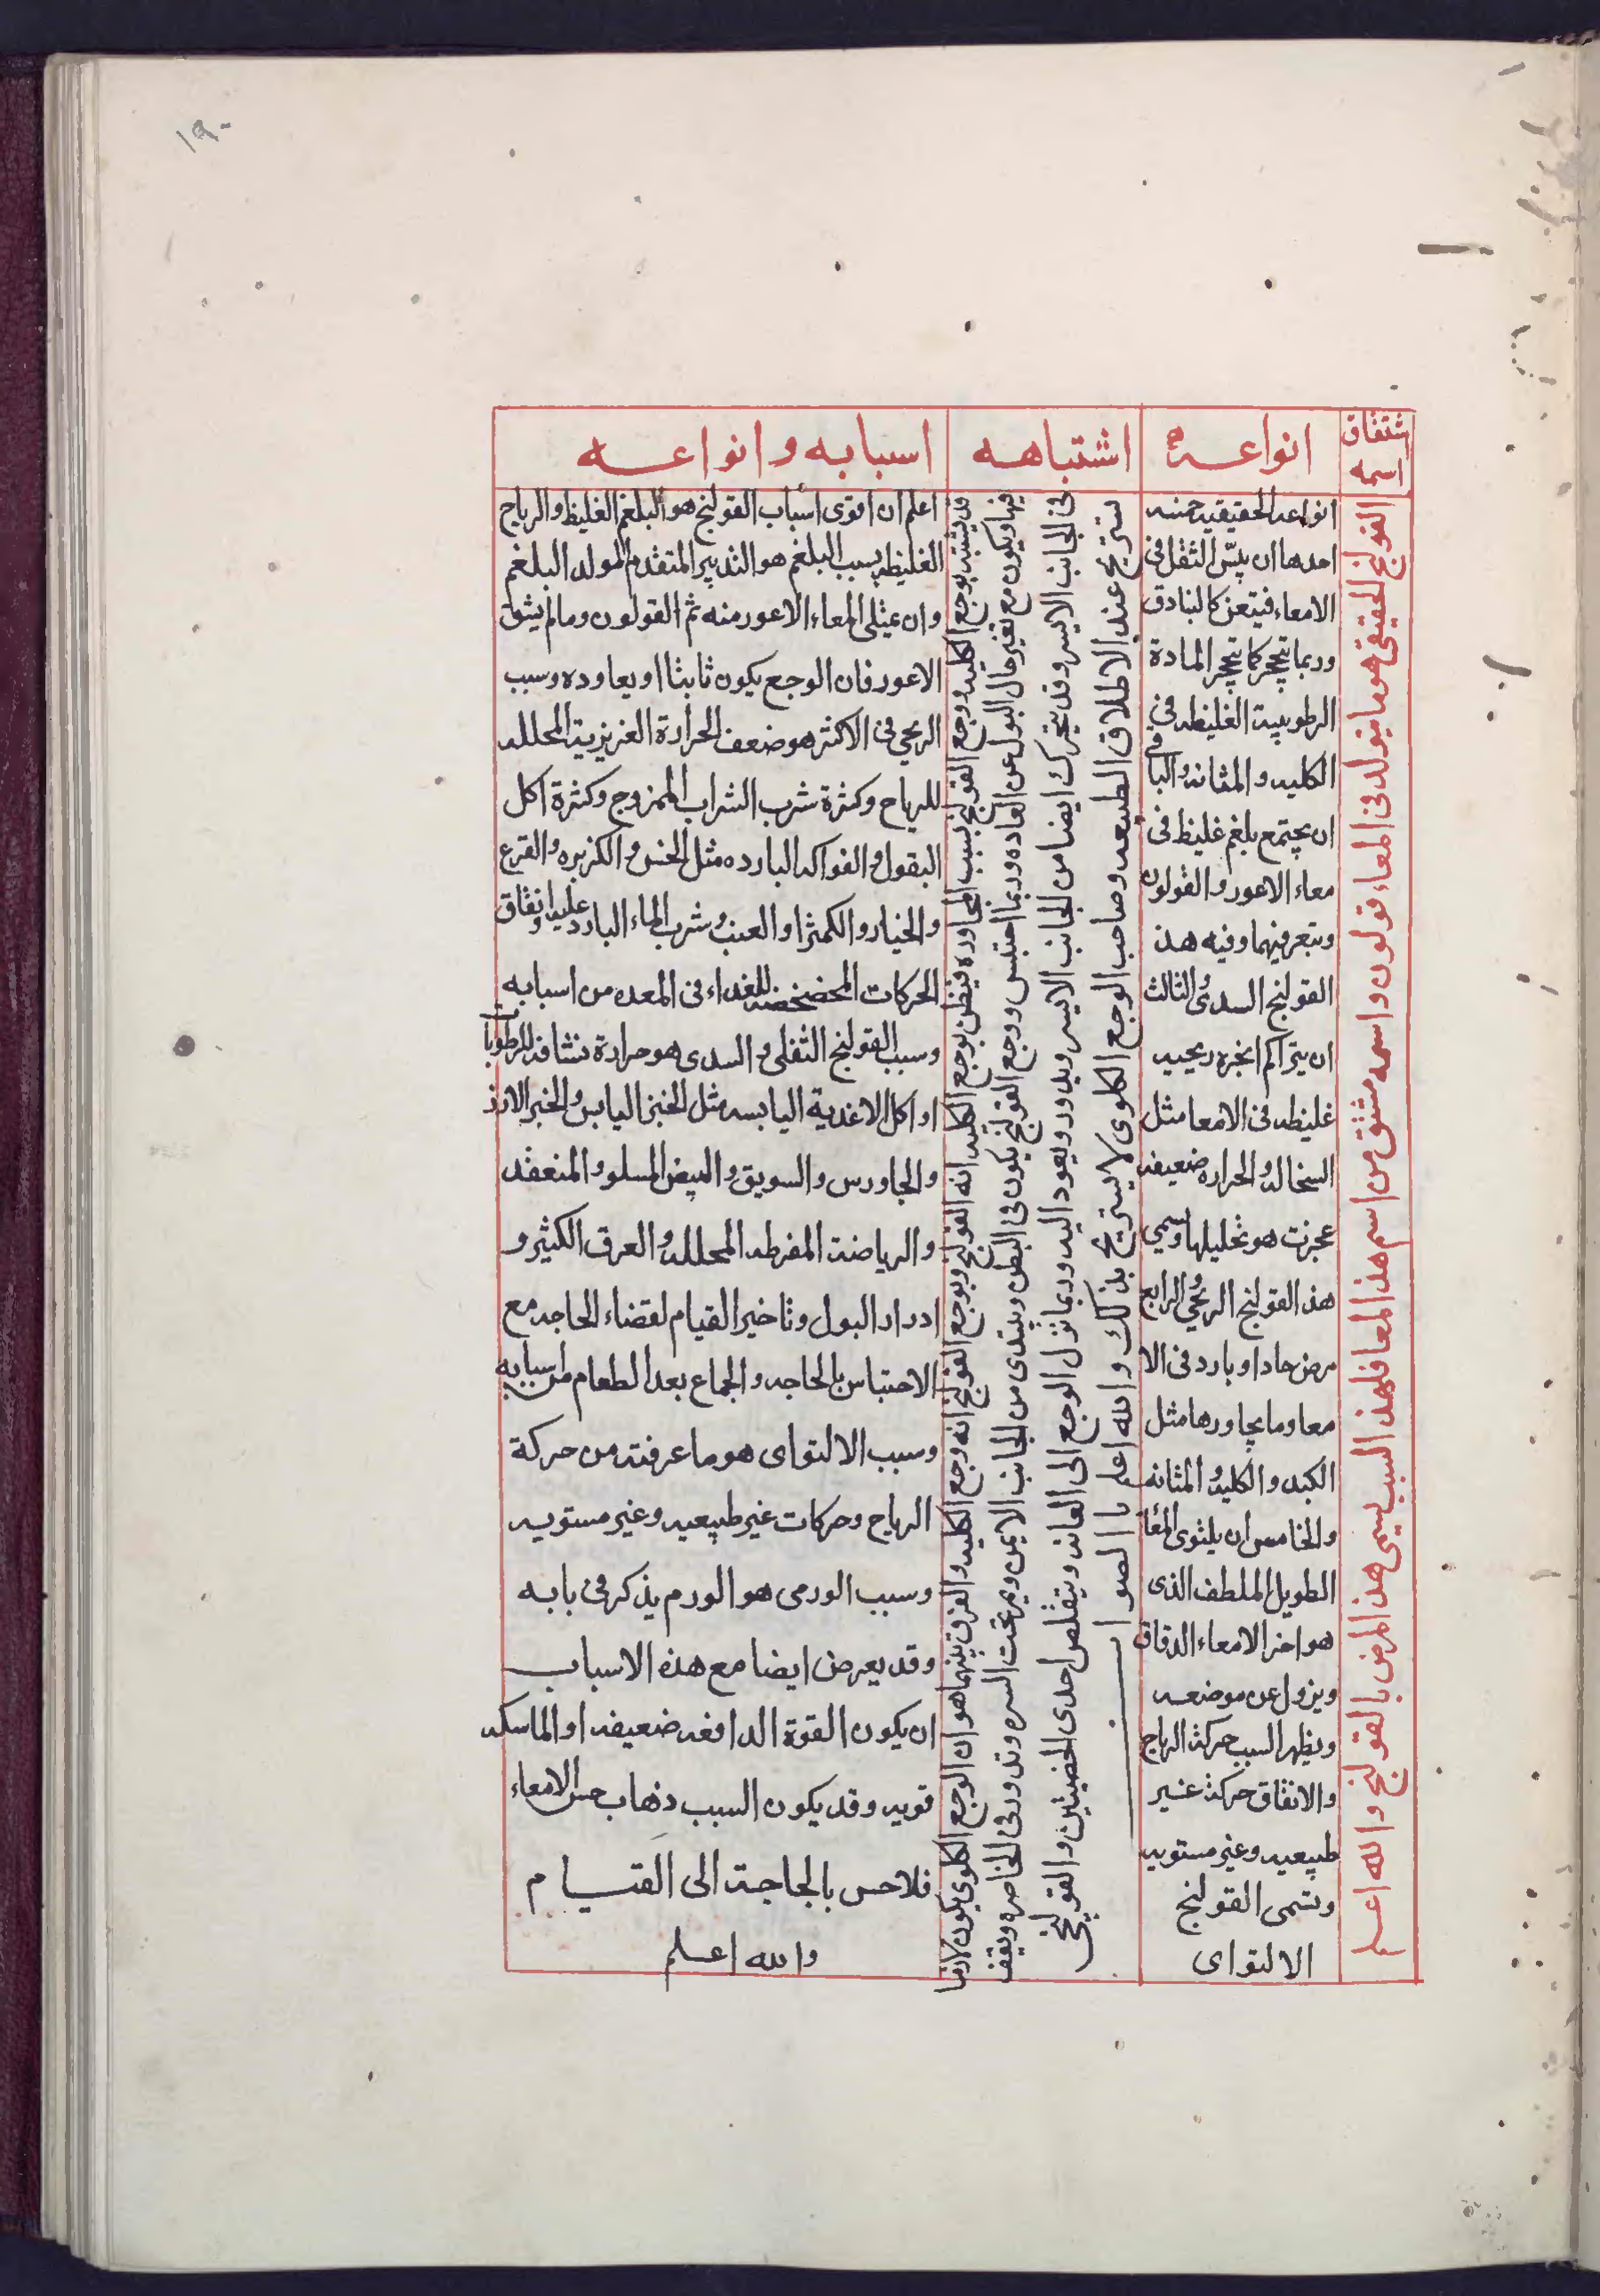 ١٩٠
اشتقاق
اسمه
القولنج الحقيقى هو ما يتولد فى المعاء قولون واسمه مشتق من اسم هذا المعا فلهذا السبب يسمى هذا المرض بالقولنج والله اعلم
انواعه
انواعه الحقيقيه خمسه
احدها ان ييبس الثفل فى
الامعاء فيتعزر كالبنادق
وربما تحجر كما تتحجر المادة
الرطوبية الغليظه فى
الكليه والمثانه والثانى
ان يجتمع بلغم غليظ فى
معاء الاعور والقولون
ويتعرفيهما وفيه هذا
القولنج السدى والثالث
ان يتراكم ابخره ريحيه
غليظه فى الامعا مثل
السخاله والحراره ضعيفه
عجزت هو تحليلها وسمى
هذا القولنج الريحى الرابع
مرض حادا وبارد فى الا
معا وما يجاورها مثل
الكبد والكليه والمثانه
والخامس ان يلتوى المعا
الطويل الملطف الذى
هو اخر الامعاء الدقاق
ويزول عن موضعه
ويظهر السبب حركة الرياح
والاتفاق حركة غير
طبيعيه وغير مستويه
ويسمى القولنج
الالتواى
اشتباهه
قد يشتبه بوجع الكليه ووجع القولنج بسبب المجاوره فيظن بوجع الكليه انه القولنج وبوجع القولنج انه وجع الكليه والفرق بينهما هو ان الوجع الكلوى يكون لازما
فيها ويكون مع تغير حال البول عن العاده وربما احتبس ووجع القولنج يكون فى البطن ويبتدى من الجانب الايمن ويمر تحت السره وتدور فى الخاصره ويقف
فى الجانب الايسر وقد يتحرك ايضا من الجانب الايسر ويدور ويعود اليه وربما نزل الوجع الى العانه ويتقلص احدى الخصيتين والقولنجى
يستريح عند الاطلاق الطبيعه وصاحب الوجع الكلوى لا يستريح بذلك والله اعلم بالصواب
اسبابه وانواعه
اعلم ان اقوى اسباب القولنج هو البلغم الغليظ والرياح
الغليظه بسبب البلغم هو التدبير المتقدم المولد البلغم
وان عيثلى المعاء الاعور منه ثم القولون وما لم يشق
الاعور فان الوجع يكون ثابتا او يعاوده وسبب
الريحى فى الاكثر هو ضعف الحرارة الغريزية المحلله
للرياح وكثرة شرب الشراب الممزوج وكثرة اكل
البقول والفواكه البارده مثل الخس والكزبره والقرع
والخيار والكمثرا والعنب وشرب الماء البارد عليه واتفاق
الحركات المخضخضه للغداء فى المعده من اسبابه
وسبب القولنج الثفلى والسدى هو حرارة نشافه للرطوبات
او اكل الاغدية اليابسه مثل الخبز اليابس والخبز الارز
والجاورس والسويق والبيض المسلو والمنعقد
والرياضة المفرطه المحلله والعرق الكثير و
ادرار البول وتاخير القيام لقضاء الحاجه مع
الاحتباس بالحاجه والجماع بعد الطعام من اسبابه
وسبب الالتواى هو ما عرفته من حركة
الرياح وحركات غير طبيعيه وغير مستويه
وسبب الورمى هو الورم يذكر فى بابه
وقد يعرض ايضا مع هذه الاسباب
ان يكون القوة الدافعه ضعيفه او الماسكه
قويه وقد يكون السبب ذهاب حس الامعاء
فلا حس بالحاجة الى القيام
والله اعلم